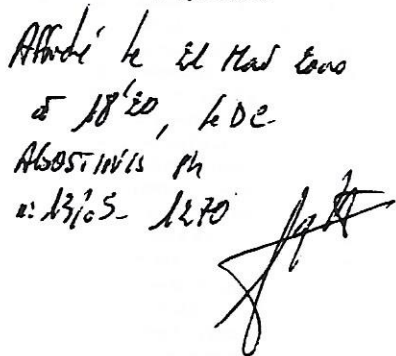 Affiché le 21 Mai 2000
à 18'20, le DC
AGOSTINIS Ph
n: 1270